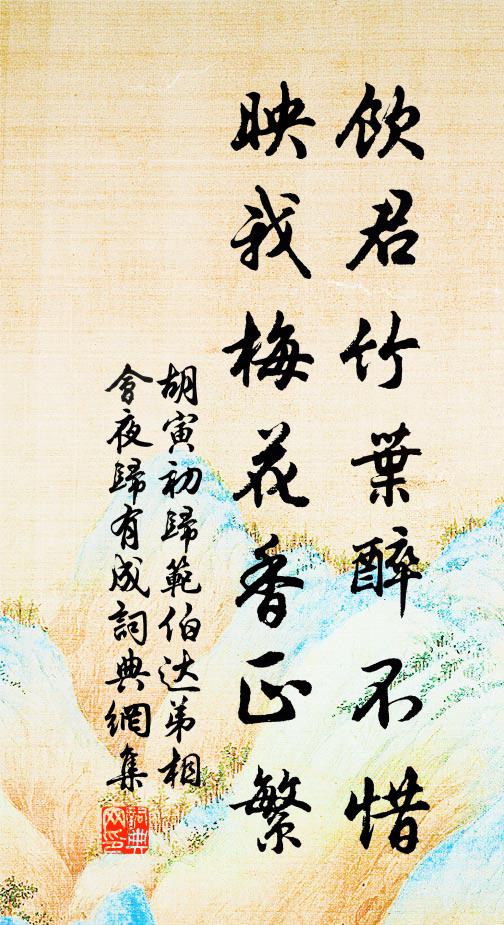 飲君竹葉醉不惜
映我梅花香正繁
胡寅初歸範伯达弟相
會夜歸有成詞典網集
詞典
网印